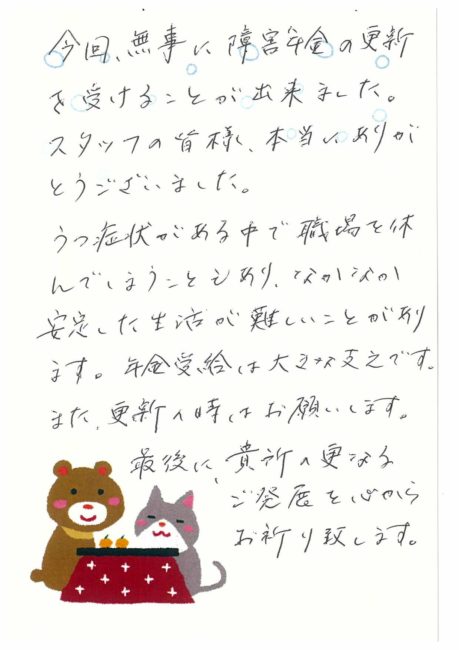 今回、無事に障害年金の更新
を受けることが出来ました。
スタッフの皆様、本当にありが
とうございました。
うつ症状がある中で職場を休
んでしまうこともあり、なかなか
安定した生活が難しいことがあり
ます。年金受給は大きな支えです。
また、更新の時はお願いします。
最後に、貴所の更なる
ご発展を心から
お祈り致します。